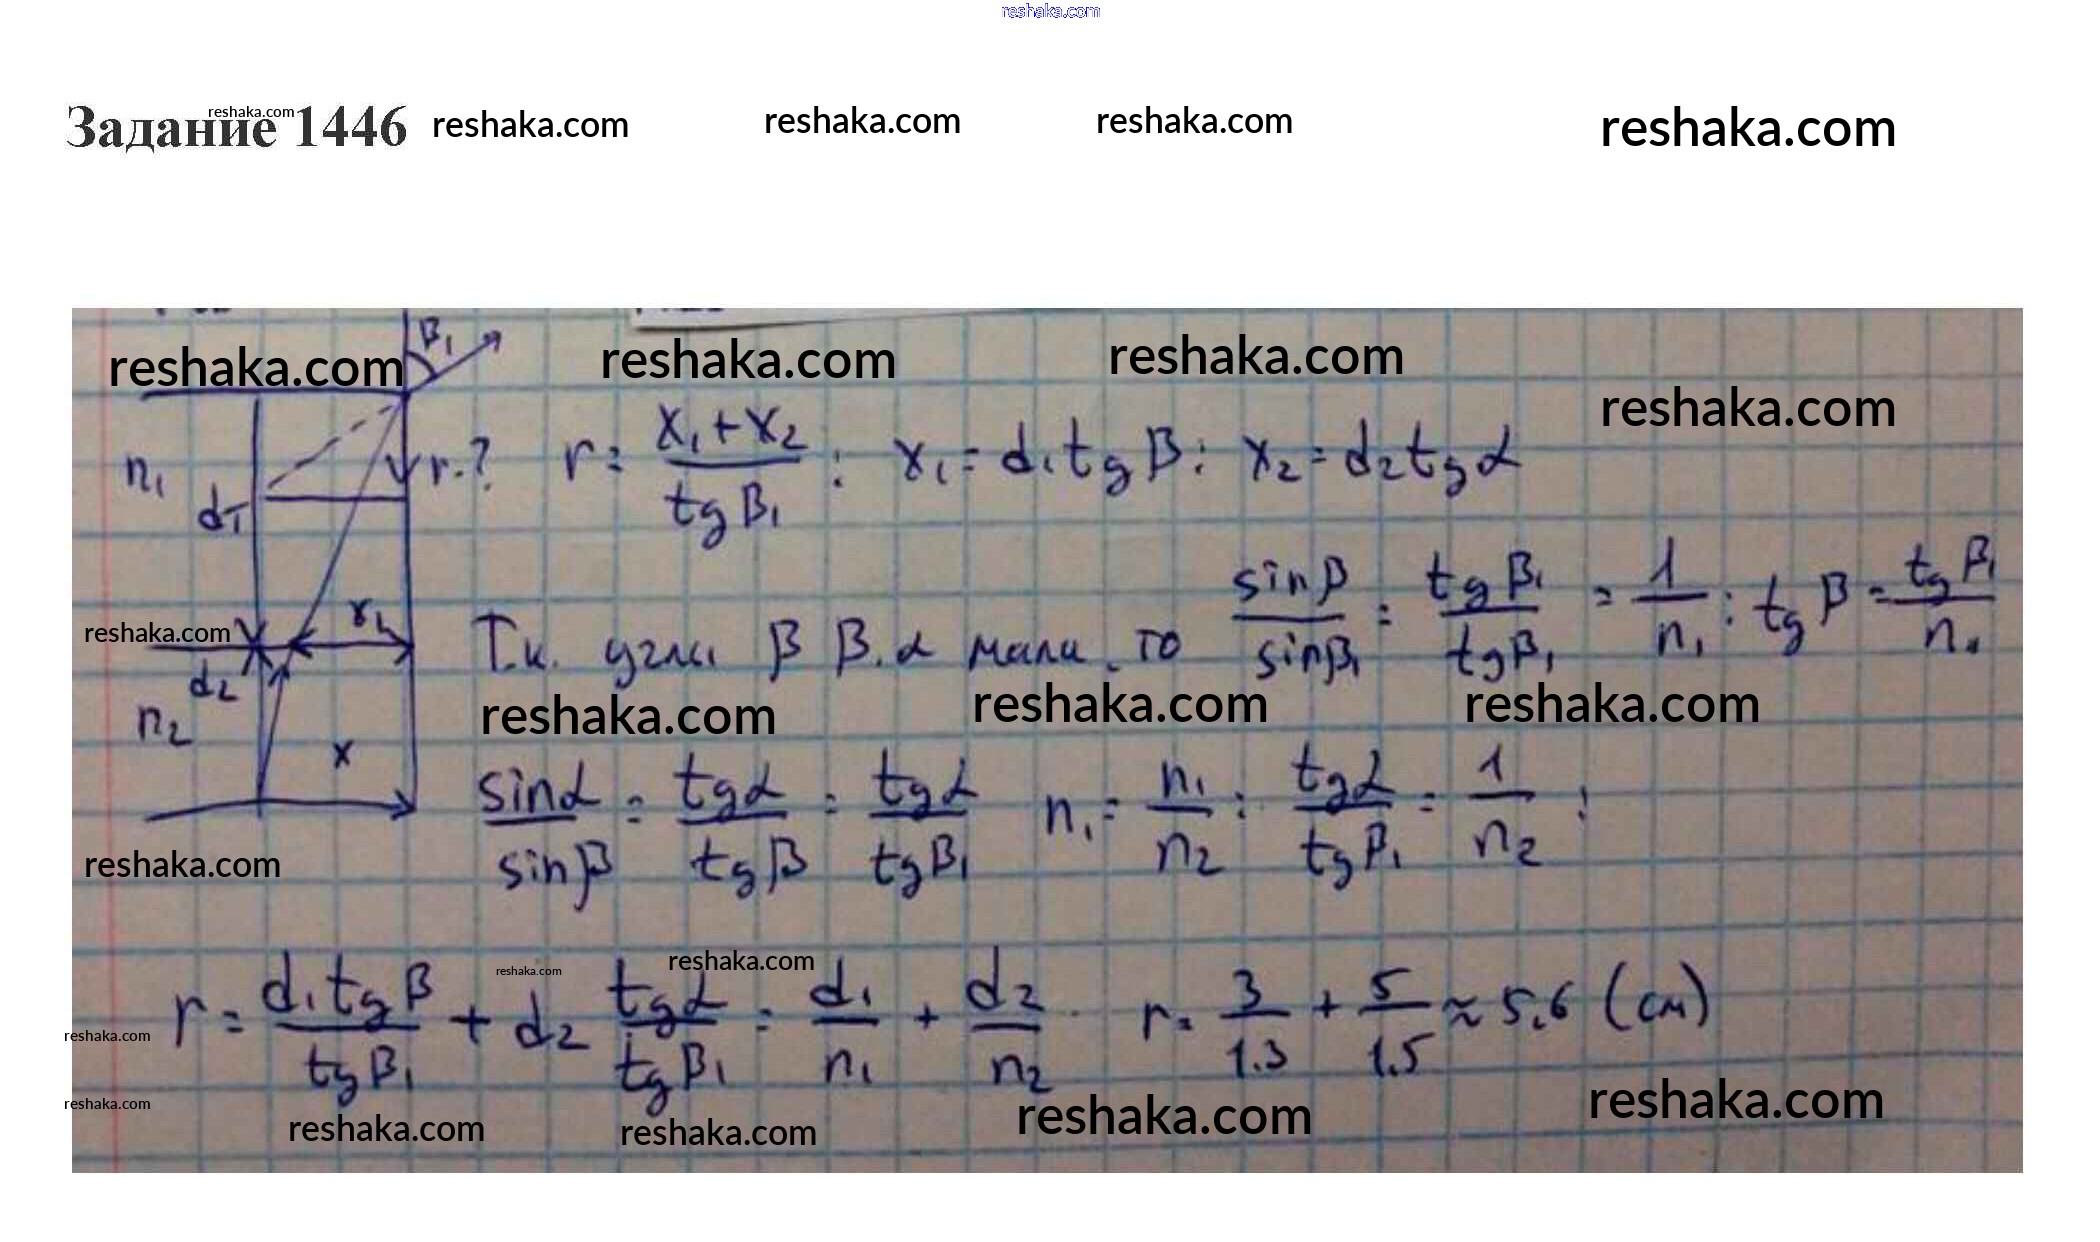 reshaka.com
Задание 1446 reshaka.com reshaka.com reshaka.com reshaka.com reshaka.com
β₁
reshaka.com reshaka.com reshaka.com reshaka.com
n₁ d₁ r.? r = (x₁ + x₂)/(tg β₁) ; x₁ = d₁ tg β ; x₂ = d₂ tg α
reshaka.com x₁ Т.к. углы β β₁ α малы, то sin β/sin β₁ = tg β₁/tg β₁ = 1/n₁ ; tg β = tg β₁/n₁
d₂
n₂ reshaka.com reshaka.com reshaka.com
x sin α/sin β = tg α/tg β = tg α/tg β₁ n₁ = n₁/n₂ ; tg α/tg β₁ = 1/n₂ ;
reshaka.com
reshaka.com reshaka.com
r = d₁ tg β/tg β₁ + d₂ tg α/tg β₁ = d₁/n₁ + d₂/n₂ r = 3/1.3 + 5/1.5 ≈ 5.6 (см)
reshaka.com
reshaka.com reshaka.com reshaka.com reshaka.com reshaka.com